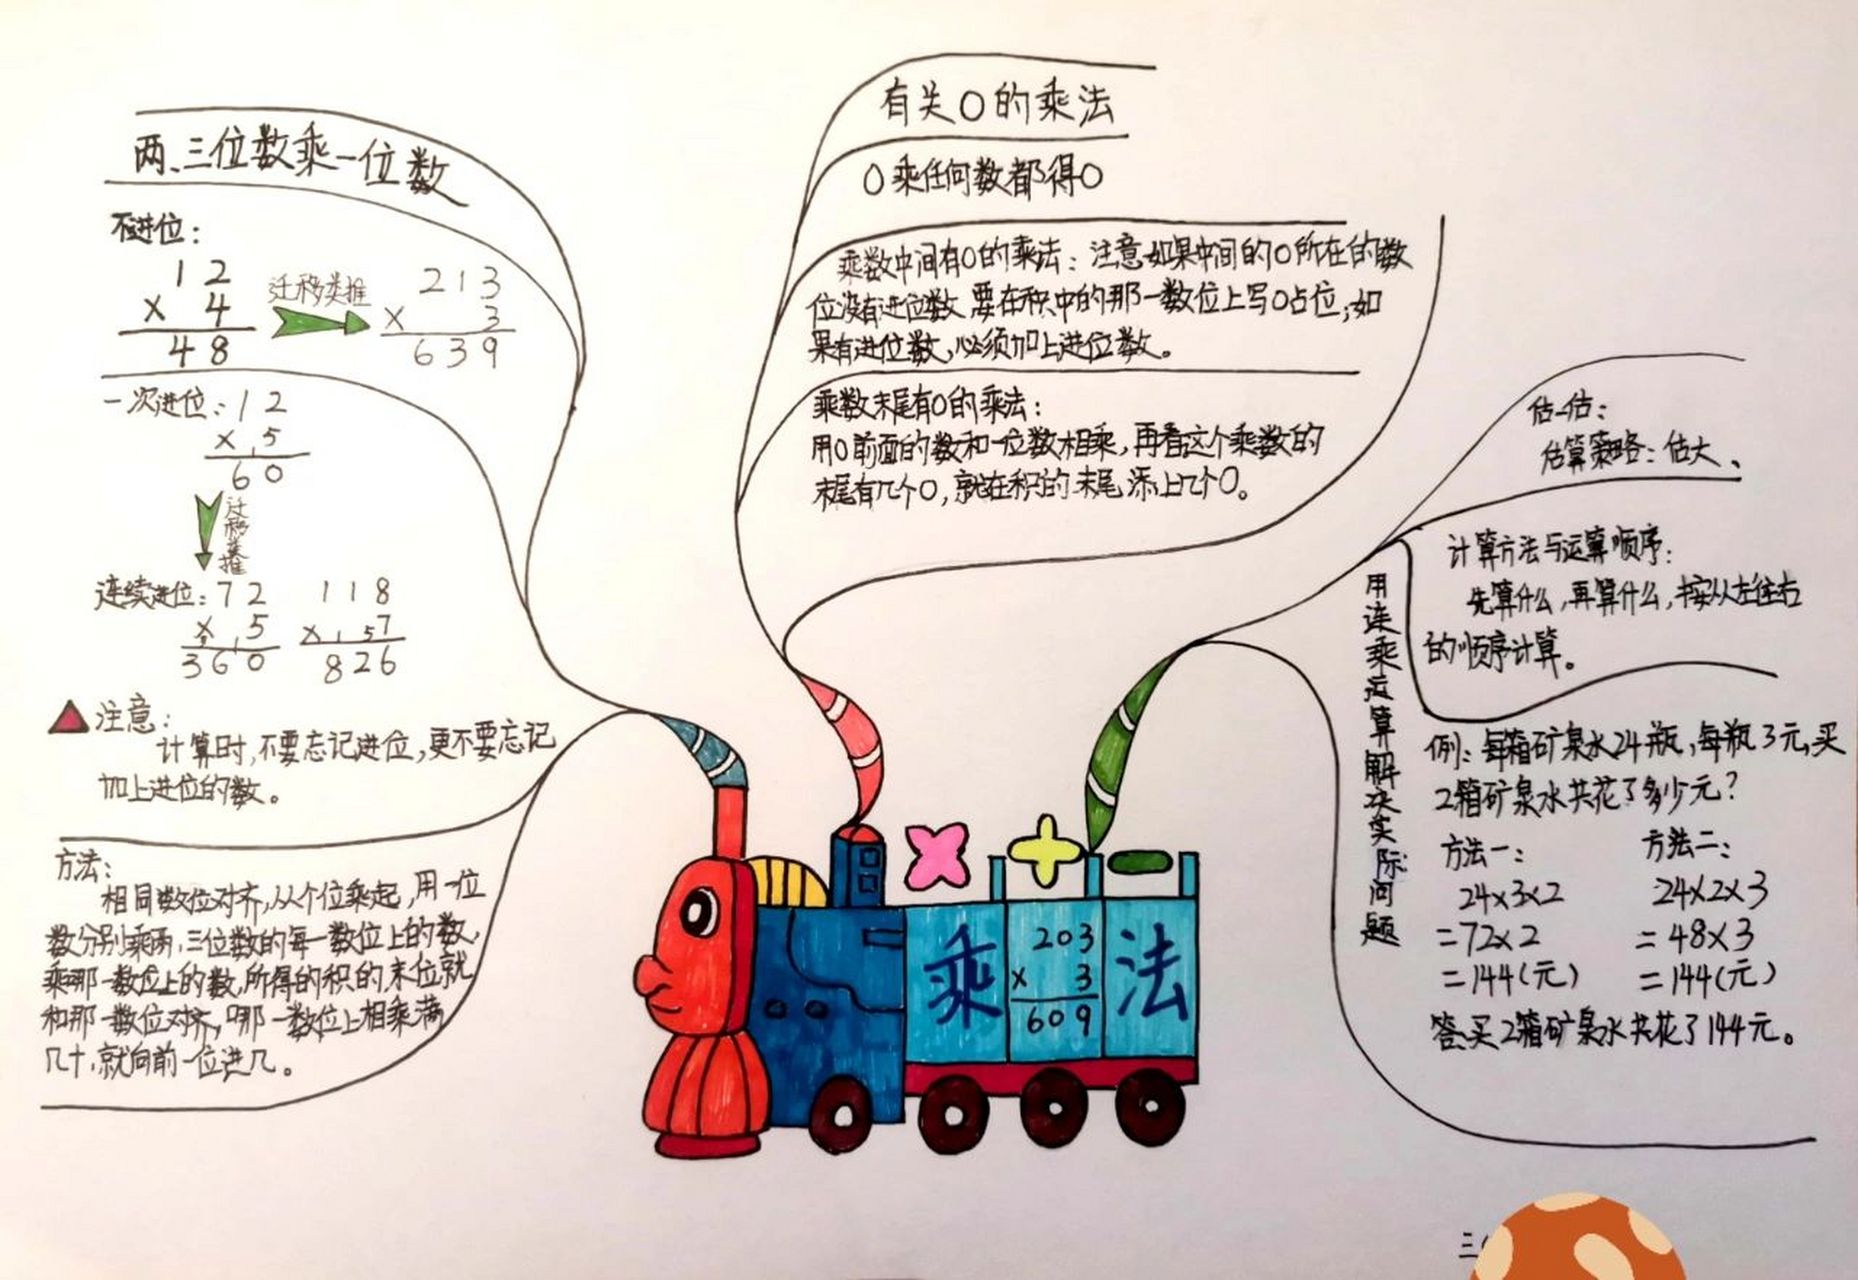 两、三位数乘一位数
不进位：
12
× 4
48
迁移类推
213
× 3
639
一次进位：12
× 5
60
迁移类推
连续进位：72
× 5
360
118
× 7
826
注意：
计算时，不要忘记进位，更不要忘记
加上进位的数。
方法：
相同数位对齐，从个位乘起，用一位
数分别乘两、三位数的每一数位上的数，
乘哪一数位上的数，所得的积的末位就
和那一数位对齐，哪一数位上相乘满
几十，就向前一位进几。
有关0的乘法
0乘任何数都得0
乘数中间有0的乘法：注意如果中间的0所在的数
位没有进位数，要在积中的那一数位上写0占位；如
果有进位数，必须加上进位数。
乘数末尾有0的乘法：
用0前面的数和一位数相乘，再看这个乘数的
末尾有几个0，就在积的末尾添上几个0。
用连乘运算解决实际问题
估一估：
估算策略：估大、
计算方法与运算顺序：
先算什么，再算什么，按从左往右
的顺序计算。
例：每箱矿泉水24瓶，每瓶3元，买
2箱矿泉水共花了多少元？
方法一：
24×3×2
=72×2
=144(元)
方法二：
24×2×3
=48×3
=144(元)
答：买2箱矿泉水共花了144元。
乘
203
× 3
609
法
三